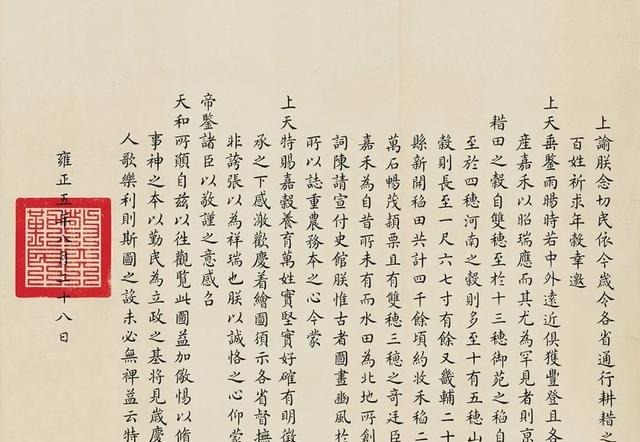 上諭朕念切民依今歲令各省通行耕耤之
百姓祈求年穀幸邀
上天垂鑒雨暘時若中外遠近俱獲豐登且各
產嘉禾以昭瑞應而其尤為罕見者則京
耤田之穀自雙穗至於十三穗御苑之稻自
至於四穗河南之穀則多至十有五穗山
穀則長至一尺六七寸有餘又畿輔二十
縣新開稻田共計四千餘頃約收禾稻二
萬石暢茂穎栗且有雙穗三穗之奇廷臣
嘉禾為自昔所未有而水田為北地所創
詞陳請宣付史館朕惟古者圖畫豳風於
所以誌重農務本之心今蒙
上天特賜嘉穀養育萬姓實堅實好確有明徵
承之下感激歡慶着繪圖頒示各省督撫
非誇張以為祥瑞也朕以誠恪之心仰蒙
帝鑒諸臣以敬謹之意感召
天和所願自茲以往觀覽此圖益加儆惕以脩
事神之本以勤民為立政之基將見歲慶
人歌樂利則斯圖之設未必無裨益云特
雍正五年八月二十八日